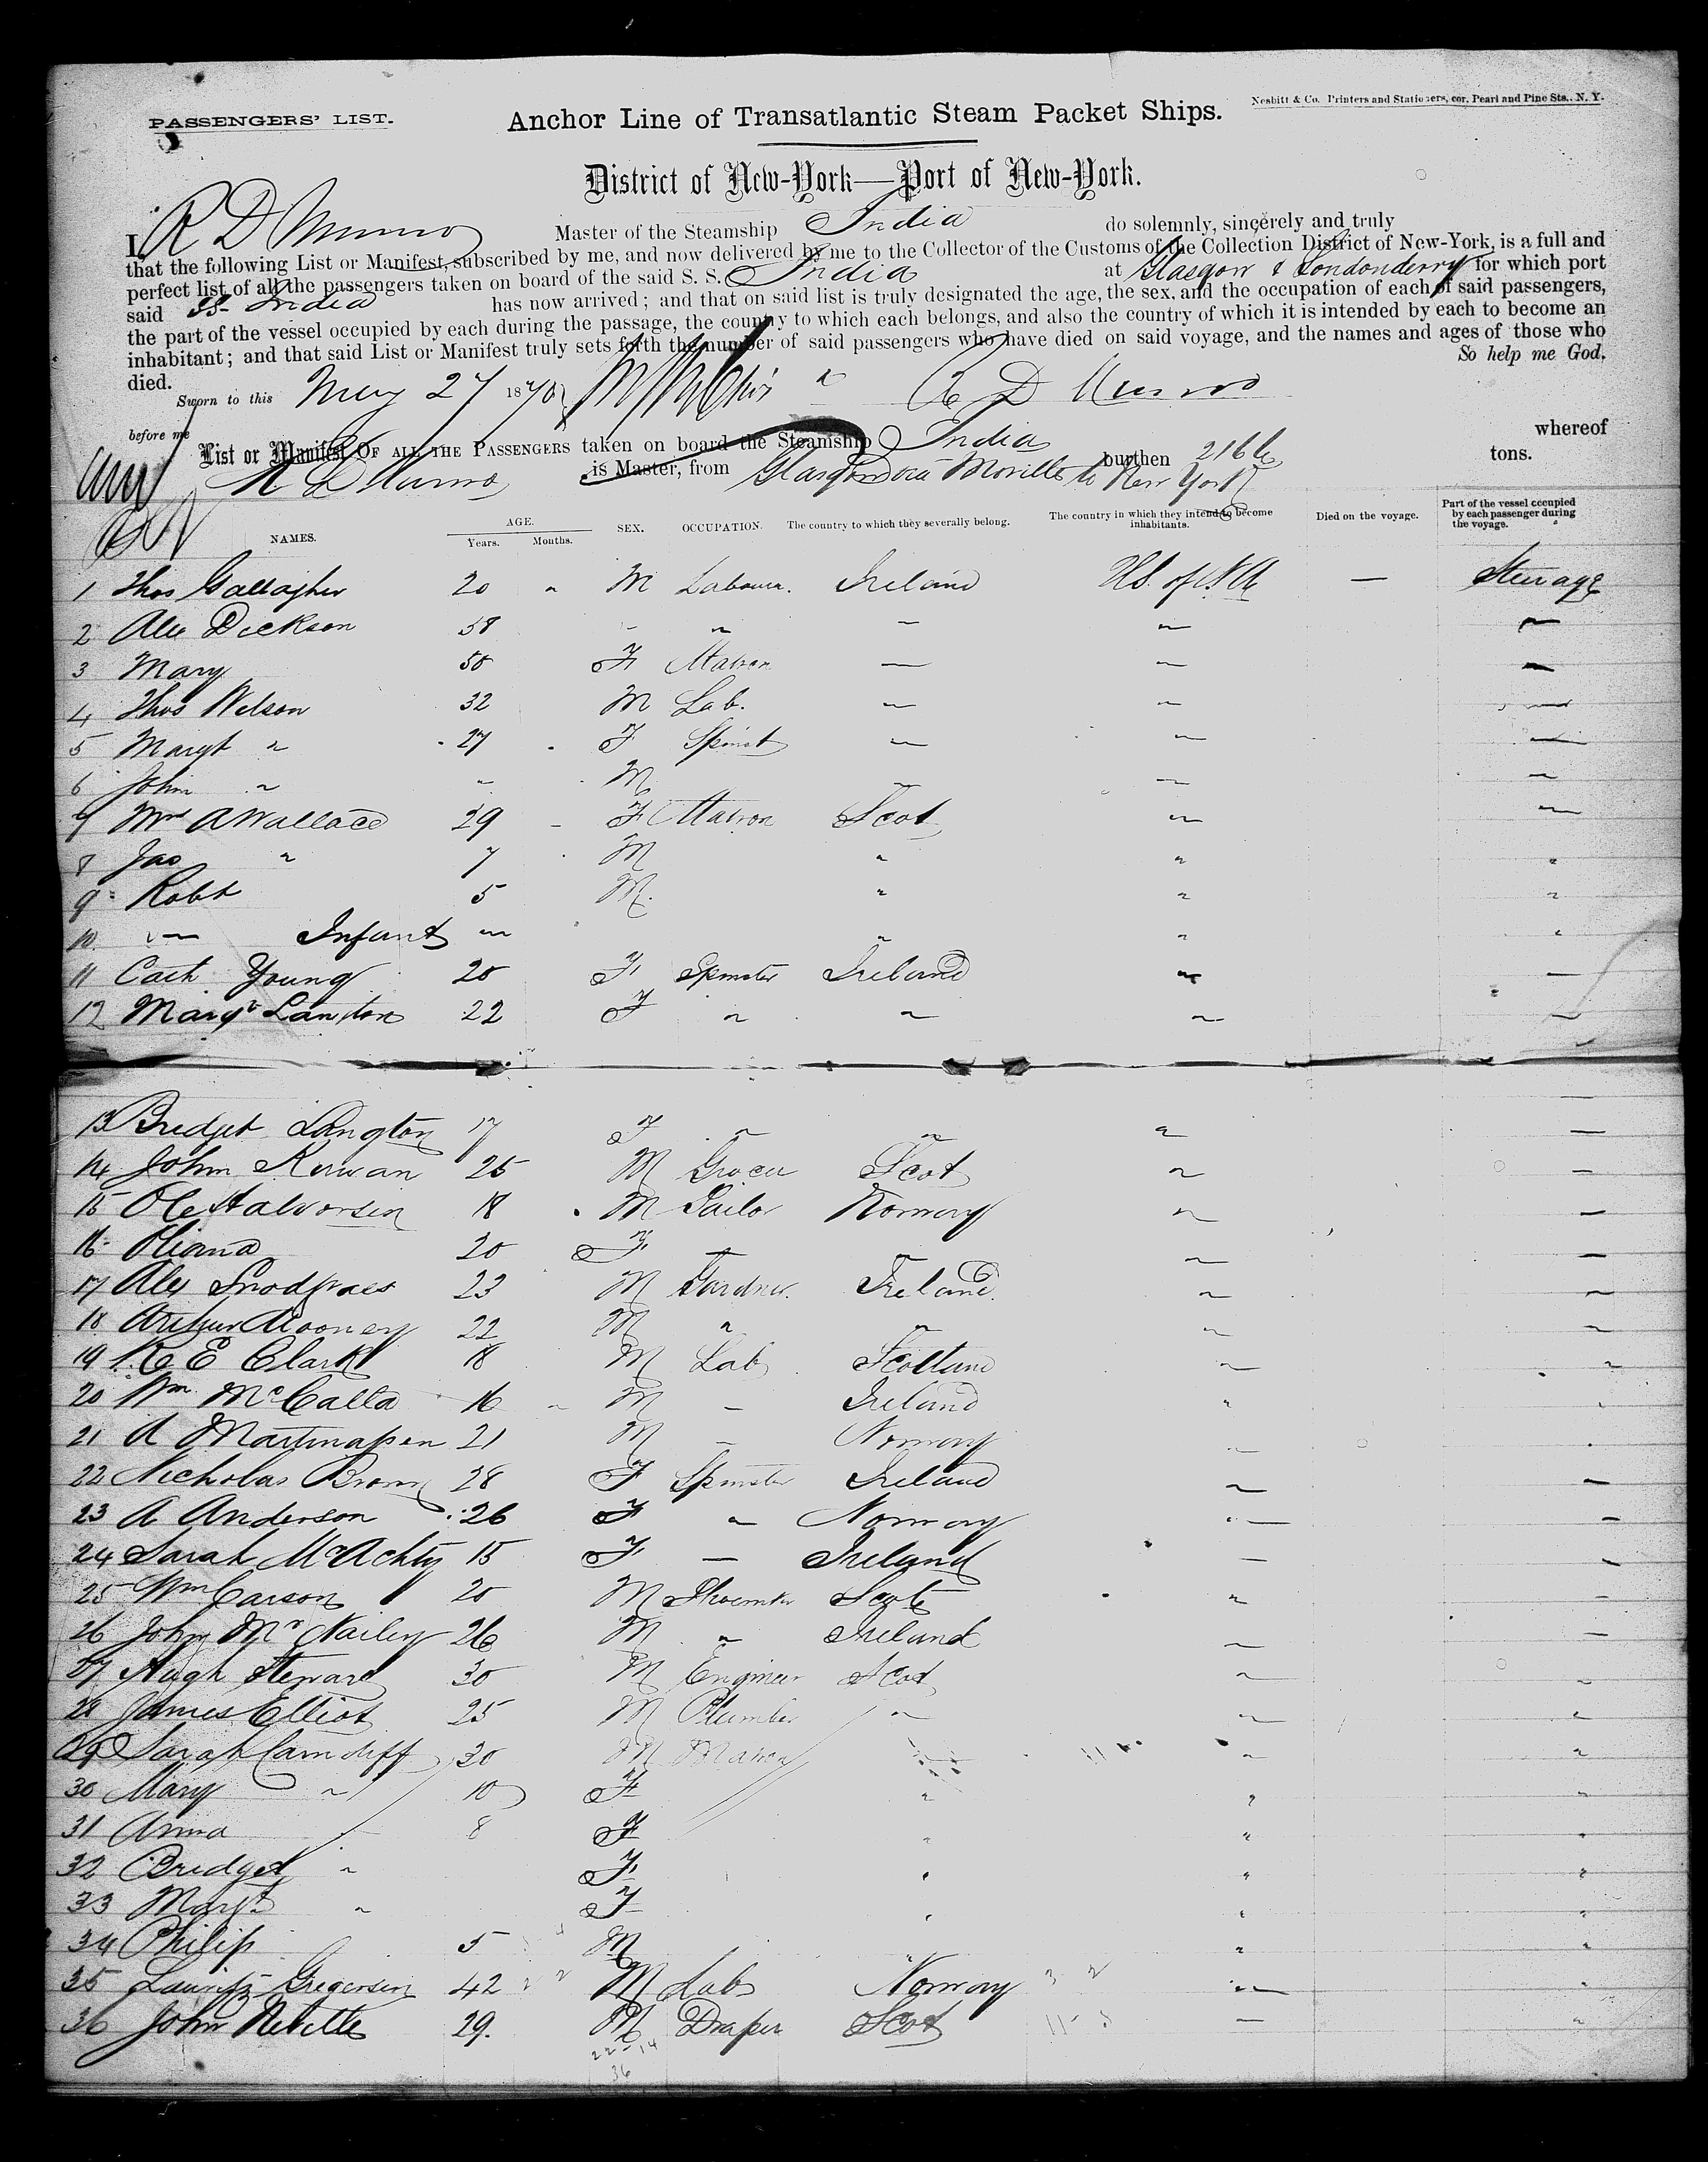 PASSENGERS' LIST.
Nesbitt & Co. Printers and Stationers, cor. Pearl and Pine Sts., N. Y.
Anchor Line of Transatlantic Steam Packet Ships.
District of New-York—Port of New-York.
I, R D Munro Master of the Steamship India do solemnly, sincerely and truly
that the following List or Manifest, subscribed by me, and now delivered by me to the Collector of the Customs of the Collection District of New-York, is a full and
perfect list of all the passengers taken on board of the said S. S. India at Glasgow & Londonderry for which port
said SS India has now arrived; and that on said list is truly designated the age, the sex, and the occupation of each of said passengers,
the part of the vessel occupied by each during the passage, the country to which each belongs, and also the country of which it is intended by each to become an
inhabitant; and that said List or Manifest truly sets forth the number of said passengers who have died on said voyage, and the names and ages of those who
died. So help me God.
Sworn to this May 27 1870 R D Munro
before me
List or Manifest OF ALL THE PASSENGERS taken on board the Steamship India whereof
R D Munro is Master, from Glasgow via Moville to New York burthen 2166 tons.
NAMES. AGE. Years. Months. SEX. OCCUPATION. The country to which they severally belong. The country in which they intend to become inhabitants. Died on the voyage. Part of the vessel occupied by each passenger during the voyage.
1 Thos Gallagher 20 " M Labourer. Ireland U.S. of N.A — Steerage
2 Alex Dickson 38 " " " " "
3 Mary 50 F Matron — " "
4 Thos Wilson 32 M Lab. " " "
5 Margt " 27 F Spinst " " "
6 John " " M " " "
7 Mrs A Wallace 29 F Matron Scot " "
8 Jas " 7 M " " "
9 Robt 5 M. " " "
10 " Infant " " " "
11 Cath Young 20 F Spinster Ireland " "
12 Margt Landon 22 F " " " "
13 Bridget Langton 17 F " " " "
14 John Kirwan 25 M Grocer Scot " "
15 Ole Halvorsen 18 M Sailor Norway " "
16 20 F — " "
17 Alex Snodgrass 23 M Gardner. Ireland. " "
18 Arthur Mooney 22 M " " " "
19 R E Clark 18 M Lab Scotland " "
20 Wm McCalla 16 M — Ireland " "
21 A 21 M — Norway " "
22 Nicholas Brown 28 F Spinster Ireland " "
23 A Anderson 26 F " Norway " "
24 Sarah 15 F — Ireland — "
25 Wm Carson 20 M Shoemkr Scot " "
26 John 26 M " Ireland " "
27 Hugh Steward 30 M Engineer Scot " "
28 James Elliot 25 M Plumber " " "
29 Sarah 30 M Matron " " "
30 Mary " 10 F " " "
31 Anna 8 F " " "
32 Bridget " F " " "
33 Margt " F " " "
34 Philip 5 M " " "
35 Lauritz Gregersen 42 M Lab Norway " "
36 John Neville 29. M Draper Scot — "
22-14
36